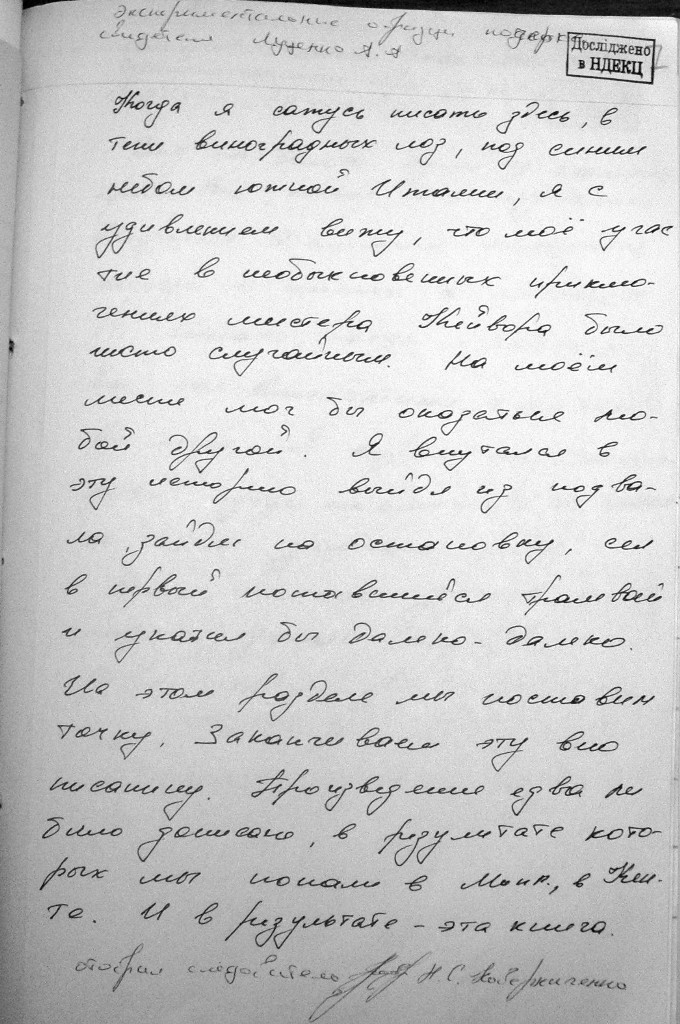 Экспериментальные образцы почерка
свидетеля Луценко А. А
Досліджено
в НДЕКЦ
Когда я сажусь писать здесь, в
тени виноградных лоз, под синим
небом южной Италии, я с
удивлением вижу, что моё учас
тие в необыкновенных приклю-
чениях мистера Кейвора было
чисто случайным. На моём
месте мог бы оказаться лю-
бой другой. Я впутался в
эту историю выйдя из подва-
ла, зайдя на остановку, сел
в первый попавшийся трамвай
и укатил бы далеко-далеко.
На этом разделе мы поставим
точку. Заканчиваем эту всю
писанину. Произведение едва ли
было дописано, в результате кото-
рых мы попали в в Кен-
те. И в результате - эта книга.
отобрал следователь Н. С.